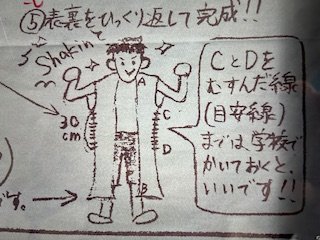 ⑤表裏をひっくり返して完成!!
Shakin
A
30
cm
C
D
B
CとDを
むすんだ線
(目安線)
までは、学校で
かいておくと、
いいです!!
です。